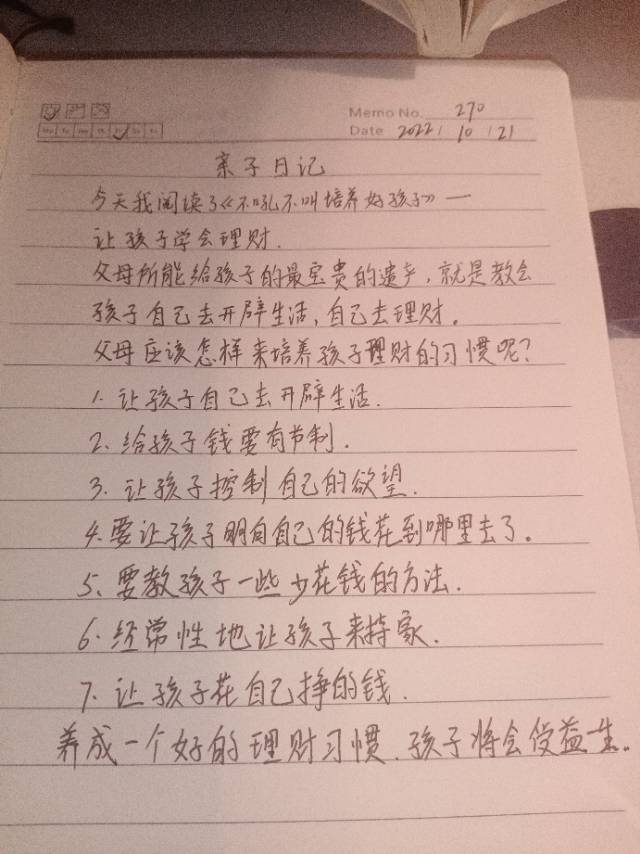 Memo No. 270
Mo Tu We Th Fr Sa Su
Date 2022 / 10 / 21
亲子日记
今天我阅读了《不吼不叫培养好孩子》一
让孩子学会理财.
父母所能给孩子的最宝贵的遗产，就是教会
孩子自己去开辟生活，自己去理财。
父母应该怎样来培养孩子理财的习惯呢？
1. 让孩子自己去开辟生活.
2. 给孩子钱要有节制.
3. 让孩子控制自己的欲望.
4. 要让孩子明白自己的钱花到哪里去了。
5、要教孩子一些少花钱的方法.
6. 经常性地让孩子来持家.
7. 让孩子花自己挣的钱.
养成一个好的理财习惯.孩子将会受益一生。